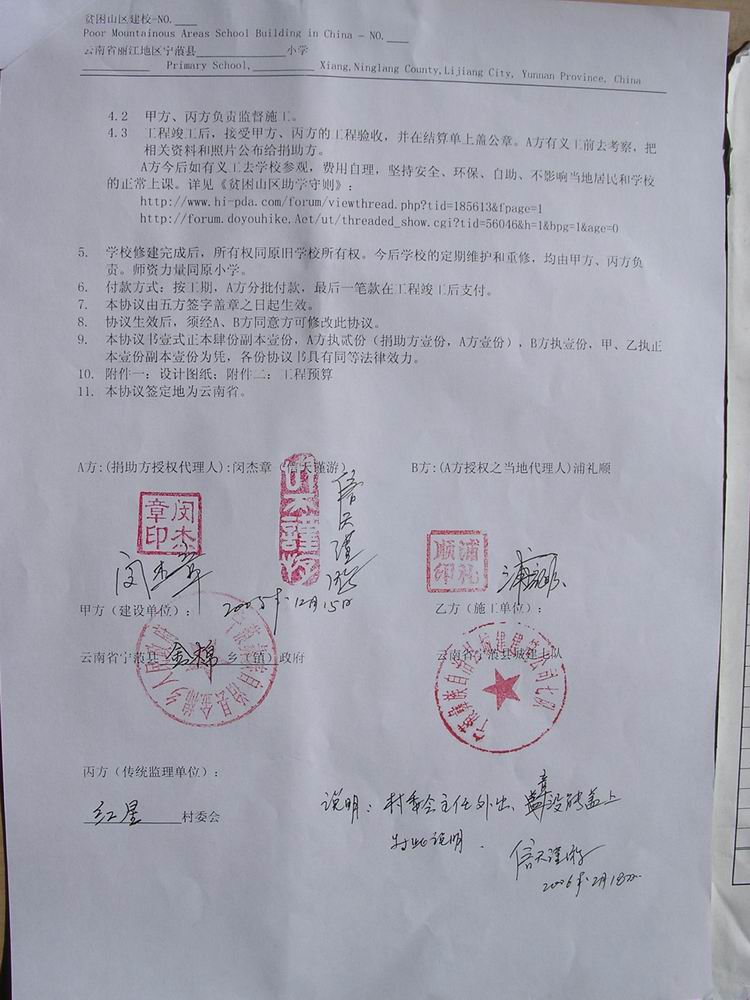 贫困山区建校-NO.____
Poor Mountainous Areas School Building in China - NO.____
云南省丽江地区宁蒗县____________小学
____________ Primary School,__________ Xiang,Ninglang County,Lijiang City, Yunnan Province, China
4.2 甲方、丙方负责监督施工。
4.3 工程竣工后，接受甲方、丙方的工程验收，并在结算单上盖公章。A方有义工前去考察，把
相关资料和照片公布给捐助方。
A方今后如有义工去学校参观，费用自理，坚持安全、环保、自助、不影响当地居民和学校
的正常上课。详见《贫困山区助学守则》：
http://www.hi-pda.com/forum/viewthread.php?tid=185613&fpage=1
http://forum.doyouhike.Aet/ut/threaded_show.cgi?tid=56046&h=1&bpg=1&age=0
5. 学校修建完成后，所有权同原旧学校所有权。今后学校的定期维护和重修，均由甲方、丙方负
责。师资力量同原小学。
6. 付款方式：按工期，A方分批付款，最后一笔款在工程竣工后支付。
7. 本协议由五方签字盖章之日起生效。
8. 协议生效后，须经A、B方同意方可修改此协议。
9. 本协议书壹式正本肆份副本壹份，A方执贰份（捐助方壹份，A方壹份），B方执壹份，甲、乙执正
本壹份副本壹份为凭，各份协议书具有同等法律效力。
10. 附件一：设计图纸；附件二：工程预算
11. 本协议签定地为云南省。
A方:(捐助方授权代理人):闵杰章（信天谨游） B方:(A方授权之当地代理人)浦礼顺
闵杰章印
信天谨游
浦礼顺印
闵杰章
2005年.12月15日
甲方（建设单位）： 乙方（施工单位）：
云南省宁蒗县 金棉 乡（镇）政府 云南省宁蒗县城建七队
丙方（传统监理单位）：
红星 村委会
说明：村委会主任外出、章没能盖上
特此说明．
信天谨游
2006年.2月18日.